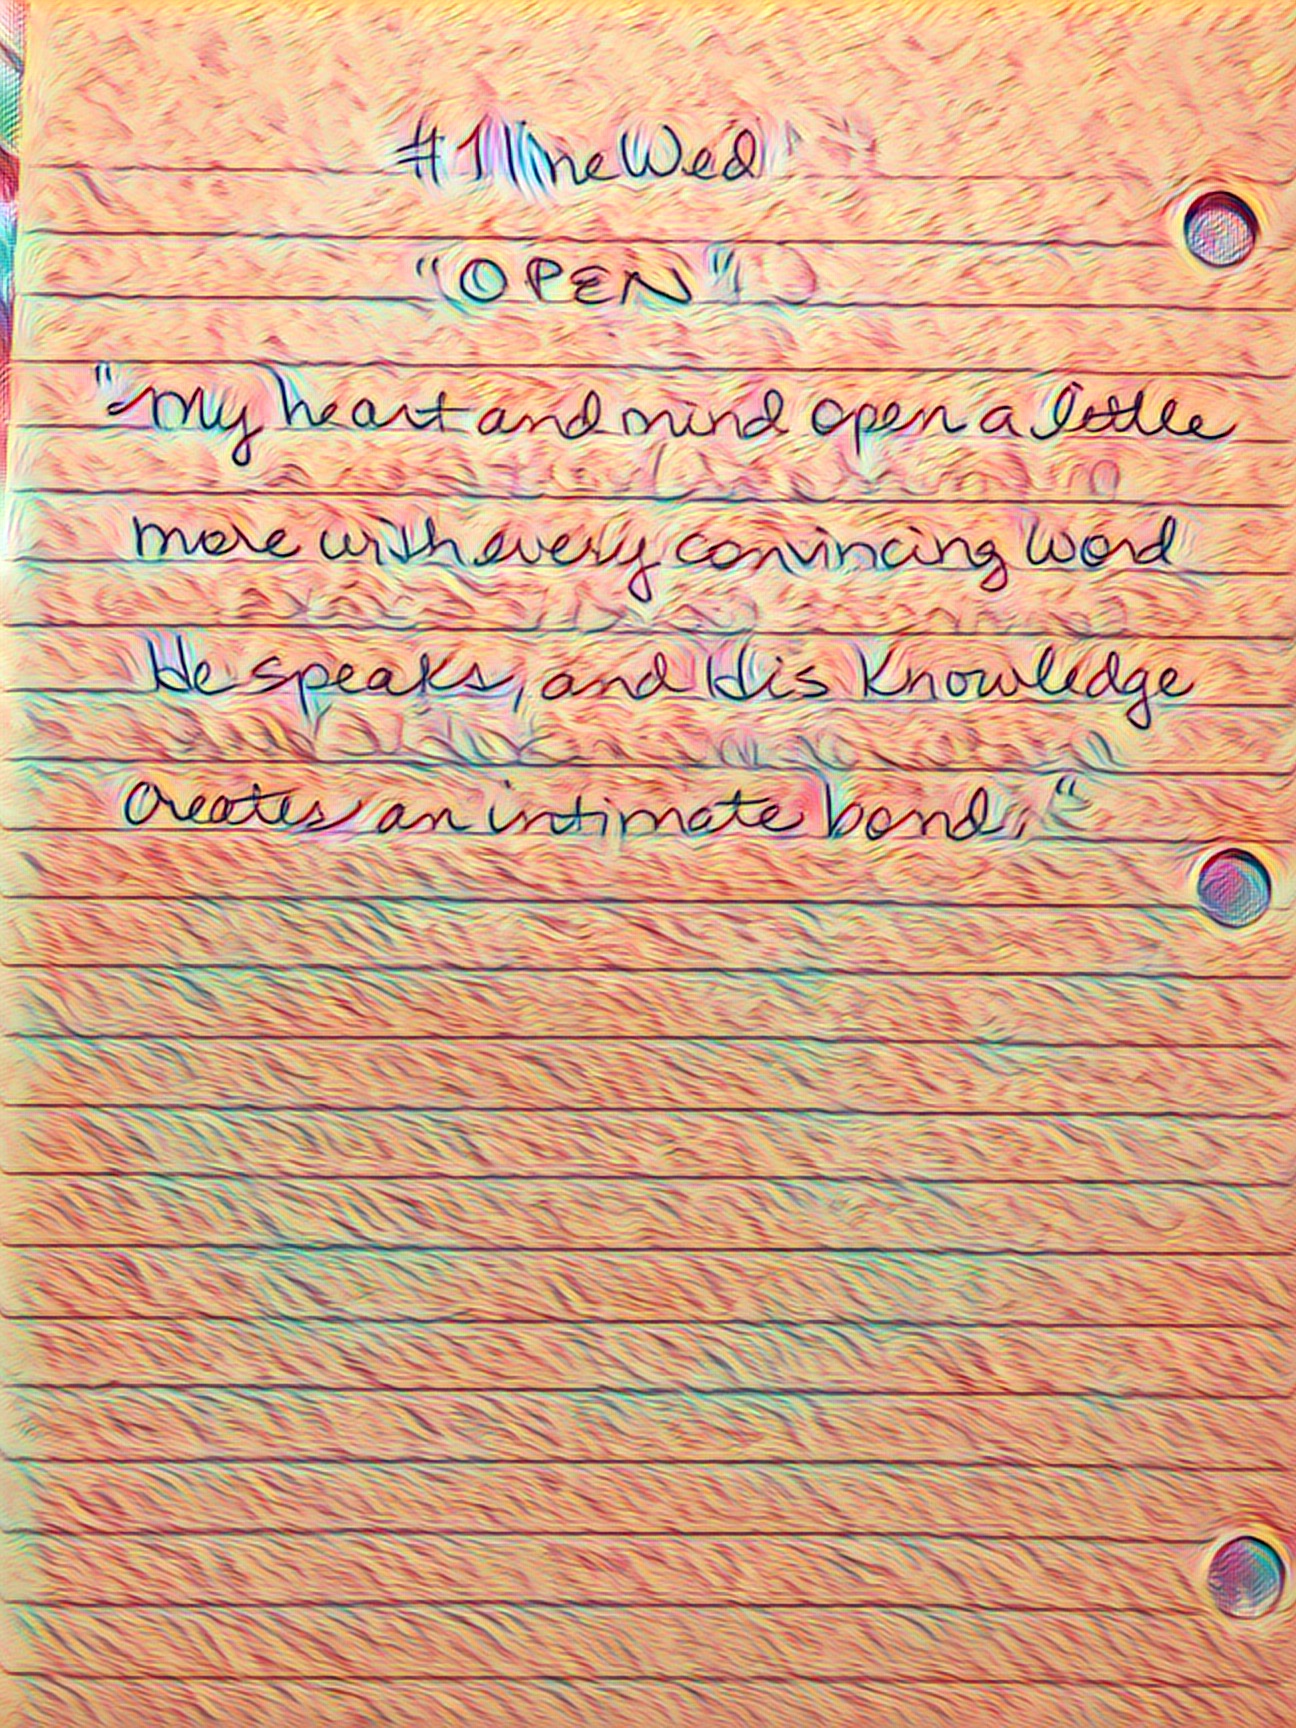 #1lineWed
"OPEN"
"My heart and mind open a little
more with every convincing word
He speaks, and His knowledge
creates an intimate bond."